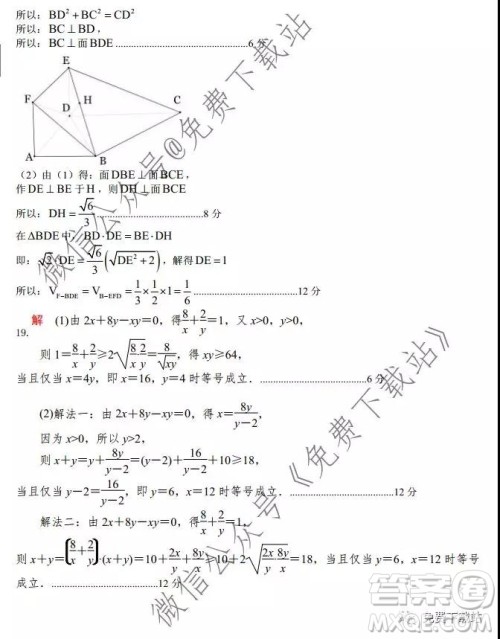 所以：BD²+BC²=CD²
所以：BC⊥BD，
所以：BC⊥面BDE ........................................6 分
E
F
H
D
C
A
B
（2）由（1）得：面DBE⊥面BCE，
作DE⊥BE于H，则DH⊥面BCE
所以：DH=√6/3 ........................................8 分
在ΔBDE中，BD·DE=BE·DH
即：√2·DE=√6/3(√(DE²+2))，解得DE=1
所以：V_{F-BDE}=V_{B-EFD}=1/3×1/2×1=1/6 ........................................12 分
解 (1)由 2x+8y-xy=0，得8/x+2/y=1，又 x>0，y>0，
19.
则 1=8/x+2/y≥2√(8/x 2/y)=8/√(xy)，得 xy≥64，
当且仅当 x=4y，即 x=16，y=4 时等号成立．........................................6 分
(2)解法一：由 2x+8y-xy=0，得 x=8y/(y-2)，
因为 x>0，所以 y>2，
则 x+y=y+8y/(y-2)=(y-2)+16/(y-2)+10≥18，
当且仅当 y-2=16/(y-2)，即 y=6，x=12 时等号成立．........................................12 分
解法二：由 2x+8y-xy=0，得8/x+2/y=1，
则 x+y=(8/x+2/y)·(x+y)=10+2x/y+8y/x≥10+2√(2x/y 8y/x)=18，当且仅当 y=6，x=12 时等号
成立．........................12 分
微信公众号@免费下载站
微信公众号《免费下载站》
答案圈
免费下载站